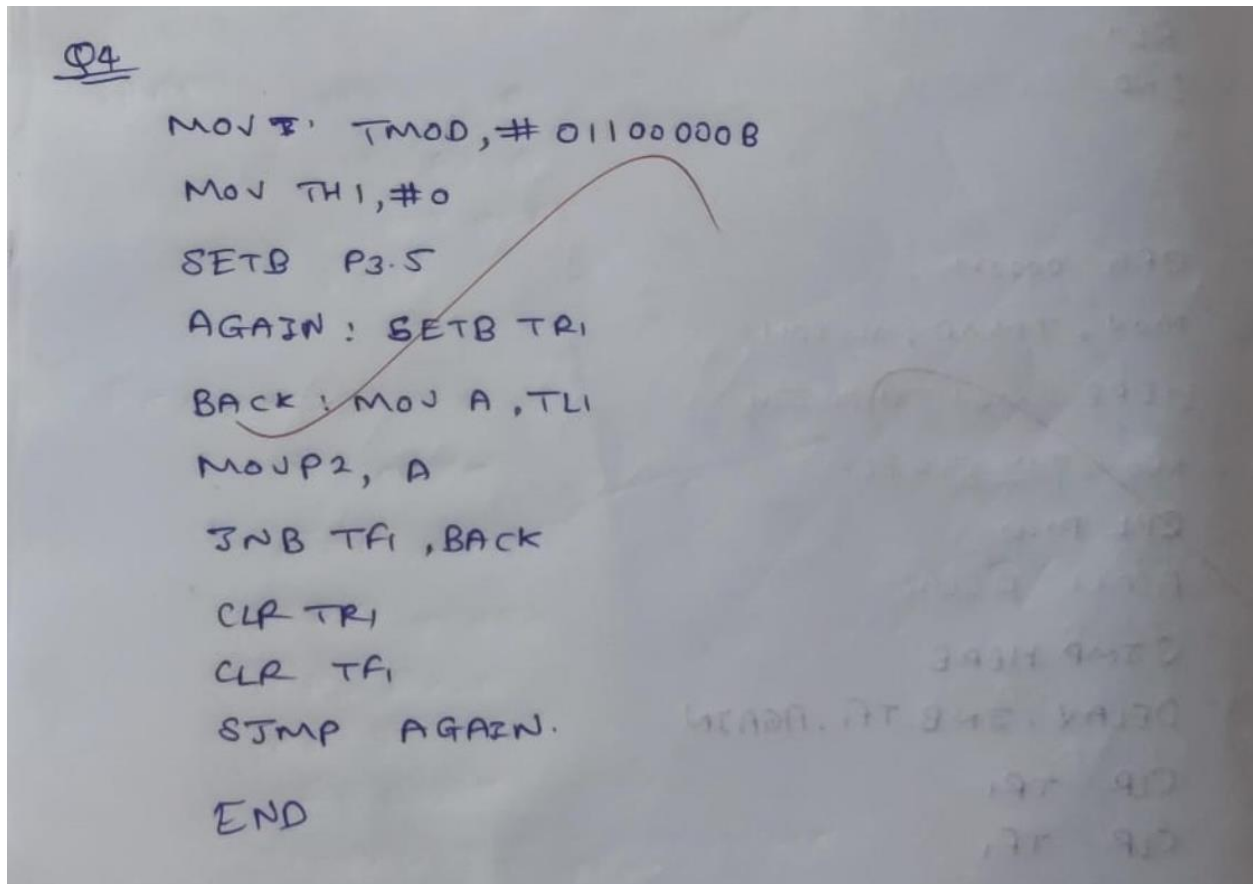 Q4
MOV TMOD, # 01100000B
MOV TH1, #0
SETB P3.5
AGAIN : SETB TR1
BACK : MOV A, TL1
MOV P2, A
JNB TF1, BACK
CLR TR1
CLR TF1
SJMP AGAIN.
END